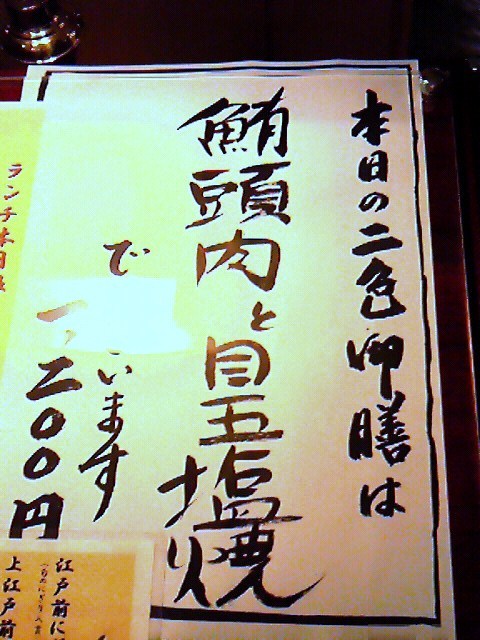 本日の二色御膳は
鮪頭肉と目玉塩焼
でございます
一、二〇〇円
ランチ本日
江戸前に
上江戸前